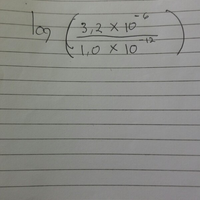 log (3,2 × 10⁻⁶ / 1,0 × 10⁻¹²)